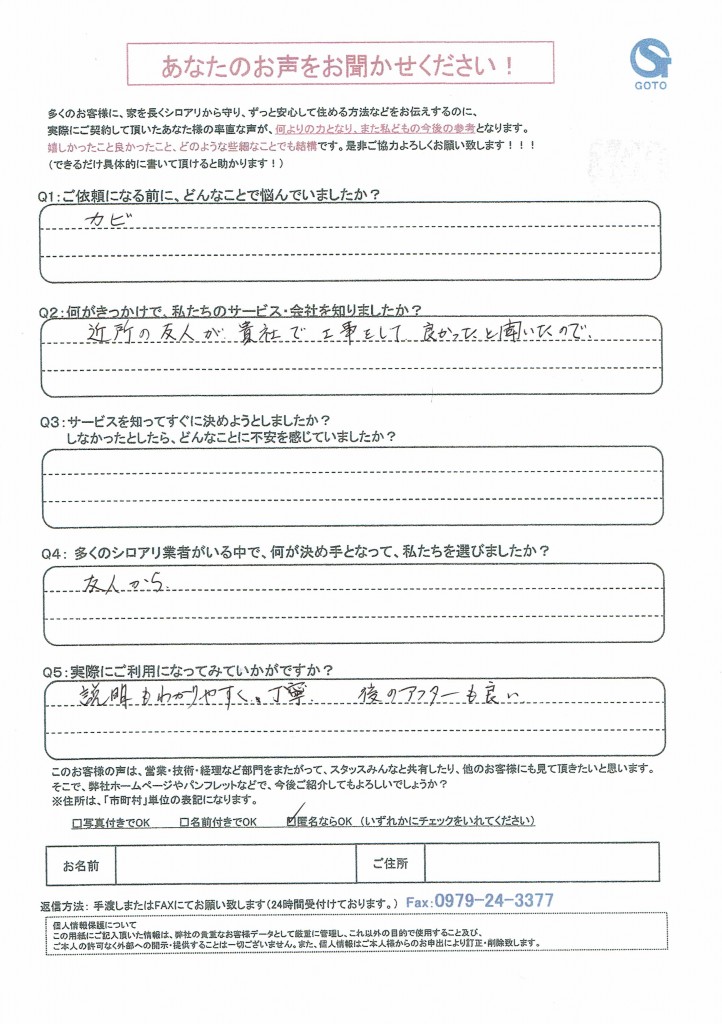 あなたのお声をお聞かせください！
GOTO
多くのお客様に、家を長くシロアリから守り、ずっと安心して住める方法などをお伝えするのに、
実際にご契約して頂いたあなた様の率直な声が、何よりの力となり、また私どもの今後の参考となります。
嬉しかったこと良かったこと、どのような些細なことでも結構です。是非ご協力よろしくお願い致します！！！
（できるだけ具体的に書いて頂けると助かります！）
Q1：ご依頼になる前に、どんなことで悩んでいましたか？
カビ
Q2：何がきっかけで、私たちのサービス・会社を知りましたか？
近所の友人が貴社で工事をして良かったと聞いたので.
Q3：サービスを知ってすぐに決めようとしましたか？
しなかったとしたら、どんなことに不安を感じていましたか？
Q4： 多くのシロアリ業者がいる中で、何が決め手となって、私たちを選びましたか？
友人から.
Q5：実際にご利用になってみていかがですか？
説明もわかりやすく、丁寧. 後のアフターも良い
このお客様の声は、営業・技術・経理など部門をまたがって、スタッスみんなと共有したり、他のお客様にも見て頂きたいと思います。
そこで、弊社ホームページやパンフレットなどで、今後ご紹介してもよろしいでしょうか？
※住所は、「市町村」単位の表記になります。
□写真付きでOK □名前付きでOK ☑匿名ならOK （いずれかにチェックをいれてください）
お名前 ご住所
返信方法： 手渡しまたはFAXにてお願い致します（24時間受付けております。） Fax：0979-24-3377
個人情報保護について
この用紙にご記入頂いた情報は、弊社の貴重なお客様データとして厳重に管理し、これ以外の目的で使用すること及び、
ご本人の許可なく外部への開示・提供することは一切ございません。また、個人情報はご本人様からのお申出により訂正・削除致します。